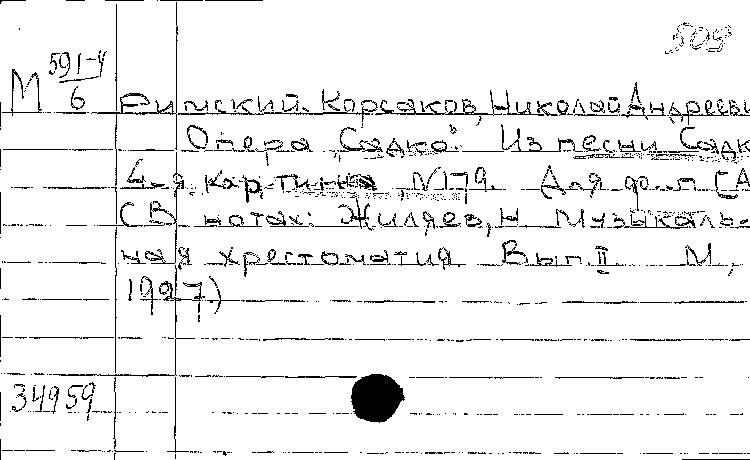 509
М 591-4/6
Римский-Корсаков, Николай Андреев
Опера "Садко". Из песни Садк
4-я картина №179. Для ф-п [А
(В нотах: Жиляев, Н Музыкаль-
ная хрестоматия Вып. II М,
1927)
34959